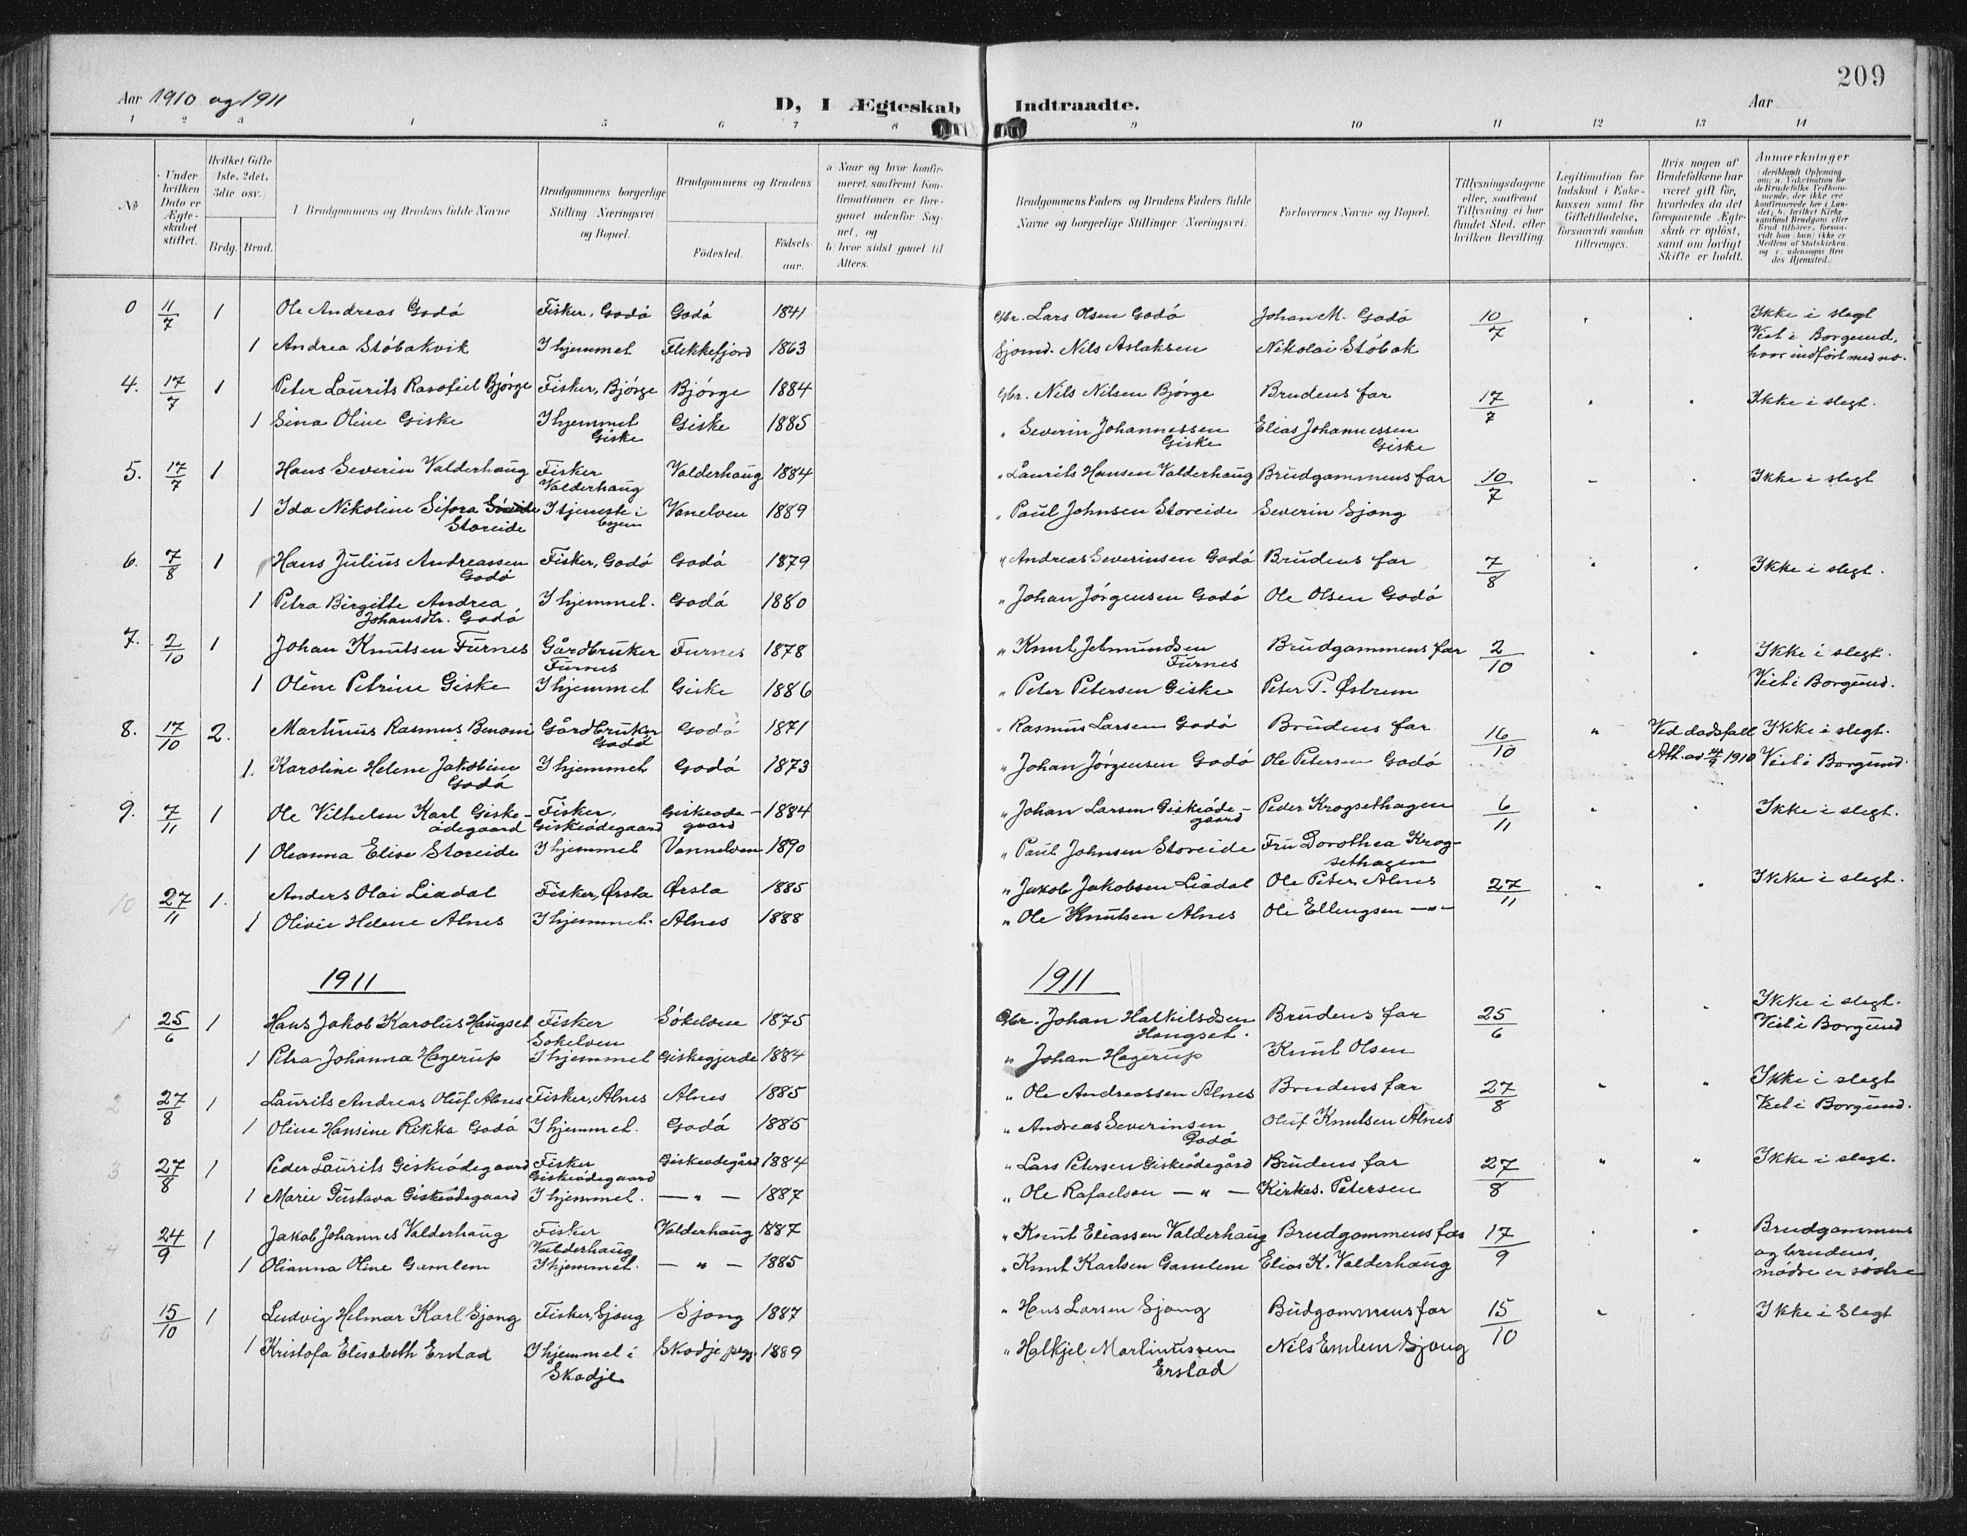 209
Aar 1910 og 1911
D, I Ægteskab Indtraadte.
Aar
1 2 3 4 5 6 7 8 9 10 11 12 13 14
№
Under hvilken Dato er Ægteskabet stiftet.
Hvilket Gifte 1ste, 2det, 3die osv.
Brdg. Brud.
1 Brudgommens og Brudens fulde Navne
Brudgommens borgerlige Stilling Næringsvei og Bopæl.
Brudgommens og Brudens
Fødested. Fødselsaar.
a Naar og hvor konfirmeret, saafremt Konfirmationen er foregaaet udenfor Sognet, og
b. hvor sidst gaaet til Alters.
Brudgommens Faders og Brudens Faders fulde Navne og borgerlige Stillinger (Næringsvei.
Forlovernes Navne og Bopæl.
Tillysningsdagene eller, saafremt Tillysning ei har fundet Sted, efter hvilken Bevilling.
Legitimation for Indskud i Enkekassen samt for Giftetilladelse, forsaavidt saadan tiltrænges.
Hvis nogen af Brudefolkene har været gift før, hvorledes da det foregaaende Ægteskab er opløst, samt om lovligt Skifte er holdt.
Anmærkninger
0 11/7 1 Ole Andreas Godø Fisker, Godø Godø 1841 Gbr. Lars Olsen Godø Johan M. Godø 10/7 Ikke i slegt
1 Andrea Stöbakvik I hjemmet Flekkefjord 1863 Sjömd. Nils Aslaksen Nikolai Stöbak Viet i Borgund, hvor indført med no.
4. 17/7 1 Peter Laurits Rasofiel Bjørge Fisker, Bjørge Bjørge 1884 Gbr. Nils Nilsen Bjørge Brudens far 17/7 Ikke i slegt.
1 Sina Oline Giske I hjemmet Giske Giske 1885 " Severin Johannessen Giske Elias Johannessen Giske
5. 17/7 1 Hans Severin Valderhaug Fisker Valderhaug Valderhaug 1884 " Laurits Hansen Valderhaug Brudgommens far 10/7 Ikke i slegt
1 Ida Nikoline Sifora Storeide I tjeneste i byen Vanelven 1889 " Paul Johnsen Storeide Severin Sjong
6. 7/8 1 Hans Julius Andreassen Godø Fisker, Godø Godø 1879 " Andreas Severinsen Godø Brudens far 7/8 Ikke i slegt.
1 Petra Birgitte Andrea Johansdtr. Godø I hjemmet. Godø 1880 " Johan Jørgensen Godø Ole Olsen Godø
7. 2/10 1 Johan Knutsen Furnes Gårdbruker Furnes Furnes 1878 " Knut Jetmundsen Furnes Brudgommens far 2/10 Ikke i slegt.
1 Oline Petrine Giske I hjemmet Giske 1886 " Peter Petersen Giske Peter P. Østrem Viet i Borgund.
8. 17/10 2. Martinus Rasmus Benoni Gårdbruker Godø Godø 1871 " Rasmus Larsen Godø Brudens far 16/10 " Ved dødsfall Ikke i slegt.
1. Karoline Helene Jakobine Godø I hjemmet Godø 1873 " Johan Jørgensen Godø Ole Petersen Godø 1910 Viet i Borgund.
9. 7/11 1 Ole Vilhelm Karl Giskeødegaard Fisker, Giskeødegaard Giskeødegaard 1884 " Johan Larsen Giskeødegaard Peder Krogsethagen 6/11 Ikke i slegt.
1 Oleanna Elise Storeide I hjemmet Vannelven 1890 " Paul Johnsen Storeide Fru Dorothea Krogsethagen
10 27/11 1. Anders Olai Liadal Fisker, Ørsta Ørsta 1885 " Jakob Jakobsen Liadal Ole Peter Alnes 27/11 Ikke i slegt.
1 Olivie Helene Alnes I hjemmet. Alnes 1888 " Ole Knutsen Alnes Ole Ellingsen — " —
1911 1911
1 25/6 1 Hans Jakob Karolus Haugset Fisker Søkelven Søkelven 1875 Gbr. Johan Halkildsen Haugset. Brudens far 25/6 Ikke i slegt.
Viet i Borgund
1 Petra Johanna Hagerup I hjemmet Giskegjerde 1884 " Johan Hagerup Knut Olsen
2 27/8 1 Laurits Andreas Oluf Alnes Fisker, Alnes Alnes 1885 " Ole Andreassen Alnes Brudens far 27/8 Ikke i slegt
Viet i Borgund.
1 Oline Hansine Rikka Godø I hjemmet. Godø 1885 " Andreas Severinsen Godø Oluf Knutsen Alnes
3 27/8 1 Peder Laurits Giskeødegaard Fisker Giskeødegaard Giskeødegård 1884 " Lars Petersen Giskeødegård Brudens far 27/8 " " Ikke i slegt.
1 Marie Gustava Giskeødegaard I hjemmet. — " — 1887 " Ole Rafaelsen — " — Kirkes. Petersen
4 24/9 1 Jakob Johannes Valderhaug Fisker Valderhaug Valderhaug 1887 " Knut Eliassen Valderhaug Brudgommens far 17/9 Brudgommens og brudens mødre er søstre
1 Olianna Oline Gamlem I hjemmet. — " — 1885 " Knut Karlsen Gamlem Elias K. Valderhaug
5 15/10 1 Ludvig Helmar Karl Sjong Fisker, Sjong Sjong 1887 " Hans Larsen Sjong Budgommens far 15/10 Ikke i Slegt
1 Kristofa Elisabeth Erstad I hjemmet i Skodje Skodje pgj. 1889 " Halkjel Martinussen Erstad Nils Emlem Sjong